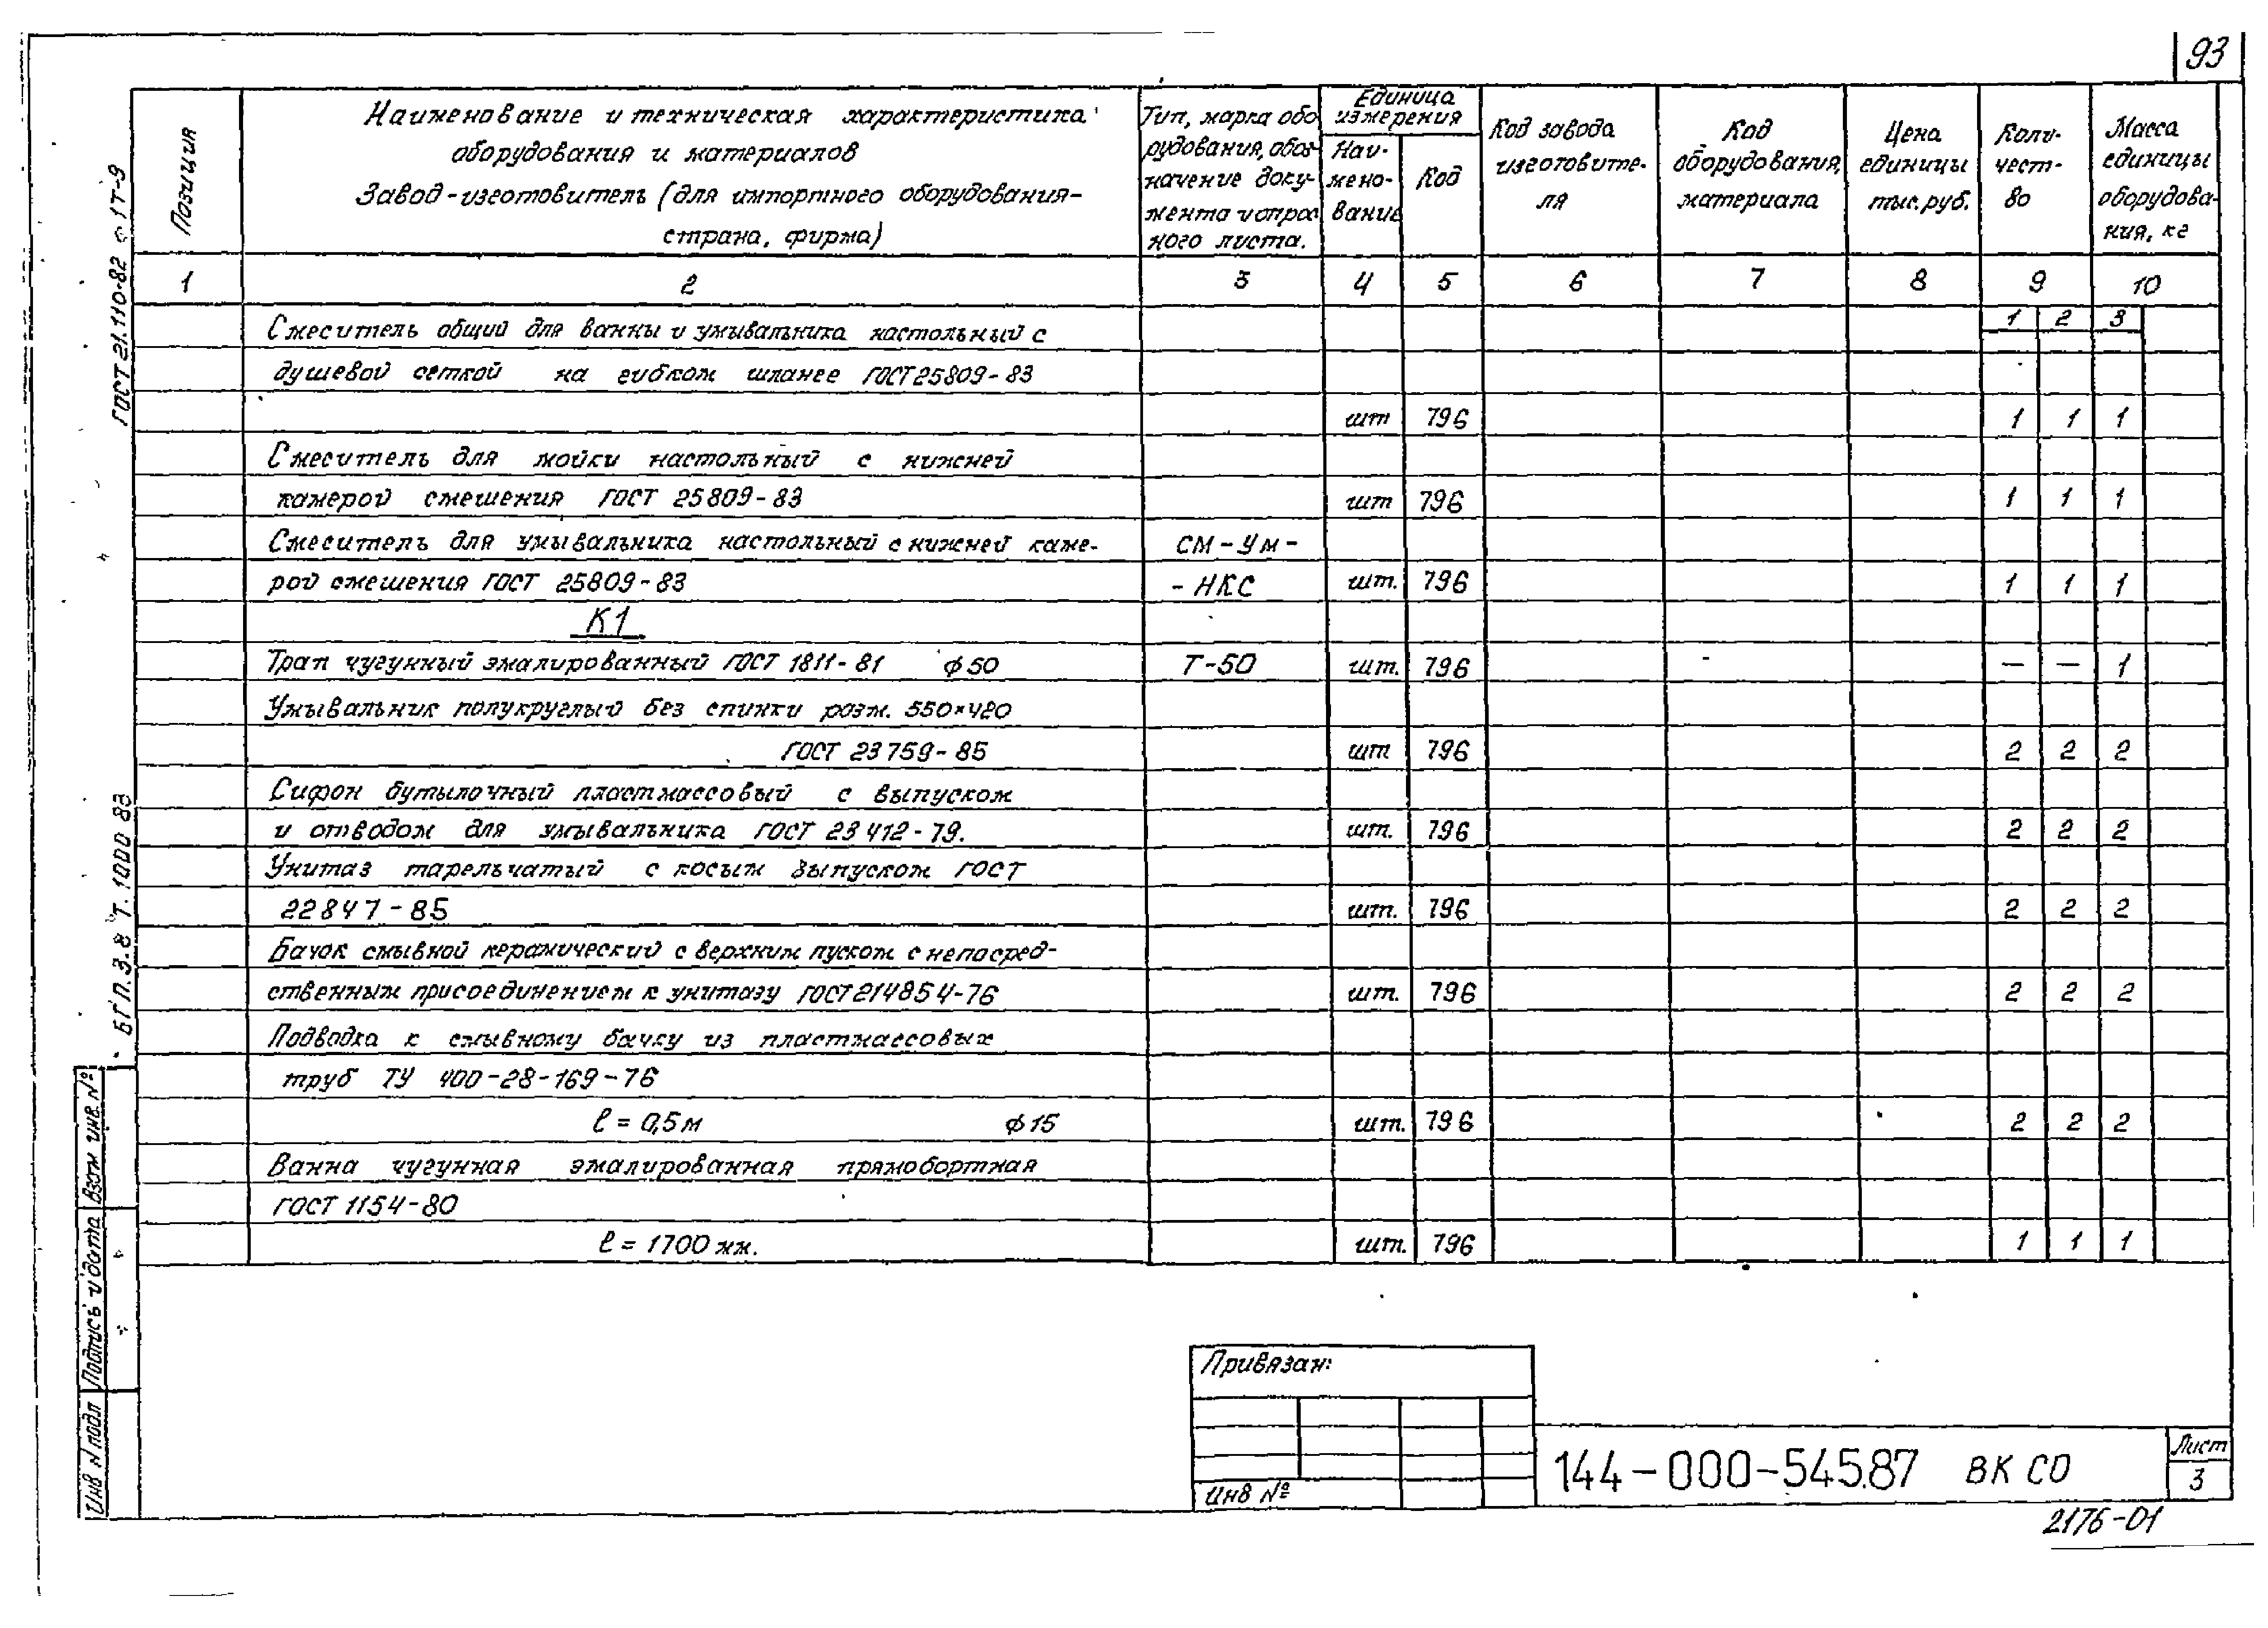 93
Позиция
Наименование и техническая характеристика
оборудования и материалов
Завод-изготовитель (для импортного оборудования-
страна, фирма)
Тип, марка обо
рудования, обоз-
начение доку-
мента и опрос
ного листа.
Единица
измерения
Наи-
мено-
вание
Код
Код завода
изготовите-
ля
Код
оборудования,
материала
Цена
единицы
тыс.руб.
Коли-
чест-
во
Масса
единицы
оборудова-
ния, кг
1 2 3 4 5 6 7 8 9 10
Смеситель общий для ванны и умывальника настольный с 1 2 3
душевой сеткой на гибком шланге ГОСТ 25809-83
шт 796 1 1 1
Смеситель для мойки настольный с нижней
камерой смешения ГОСТ 25809-83 шт 796 1 1 1
Смеситель для умывальника настольный с нижней каме- СМ-УМ-
рой смешения ГОСТ 25809-83 -НКС шт. 796 1 1 1
К1
Трап чугунный эмалированный ГОСТ 1811-81 ф50 Т-50 шт. 796 — — 1
Умывальник полукруглый без спинки разм. 550×420
ГОСТ 23759-85 шт 796 2 2 2
Сифон бутылочный пластмассовый с выпуском
и отводом для умывальника ГОСТ 23412-79. шт. 796 2 2 2
Унитаз тарельчатый с косым выпуском ГОСТ
22847-85 шт. 796 2 2 2
Бачок смывной керамический с верхним пуском с непосред-
ственным присоединением к унитазу ГОСТ 214854-76 шт. 796 2 2 2
Подводка к смывному бачку из пластмассовых
труб ТУ 400-28-169-76
ℓ = 0,5 м ф15 шт. 796 2 2 2
Ванна чугунная эмалированная прямобортная
ГОСТ 1154-80
ℓ = 1700 мм. шт. 796 1 1 1
ГОСТ 21.110-82
БГП.3.8 Т. 1000
Взам инв. №
Подпись и дата
Инв N подл
Привязан:
Инв №
144-000-545.87 ВК СО
Лист
3
2176-01